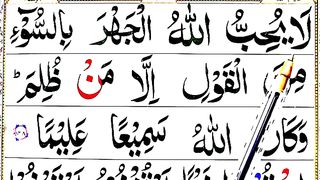 لَا يُحِبُّ اللّٰهُ الْجَهْرَ بِالسُّوْٓءِ
مِنَ الْقَوْلِ اِلَّا مَنْ ظُلِمَ ؕ
وَكَانَ اللّٰهُ سَمِيْعًا عَلِيْمًا ۝۱۴۸